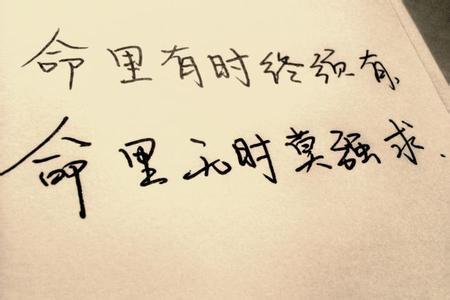 命里有时终须有,
命里无时莫强求.